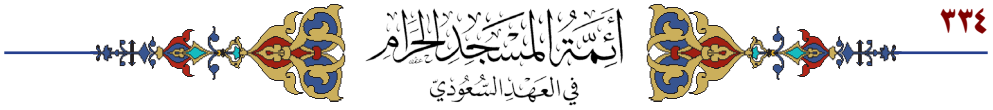 ٣٣٤
أَئِمَّةُ المَسْجِدِ الحَرَامِ
في العَهْدِ السُّعُودِيّ